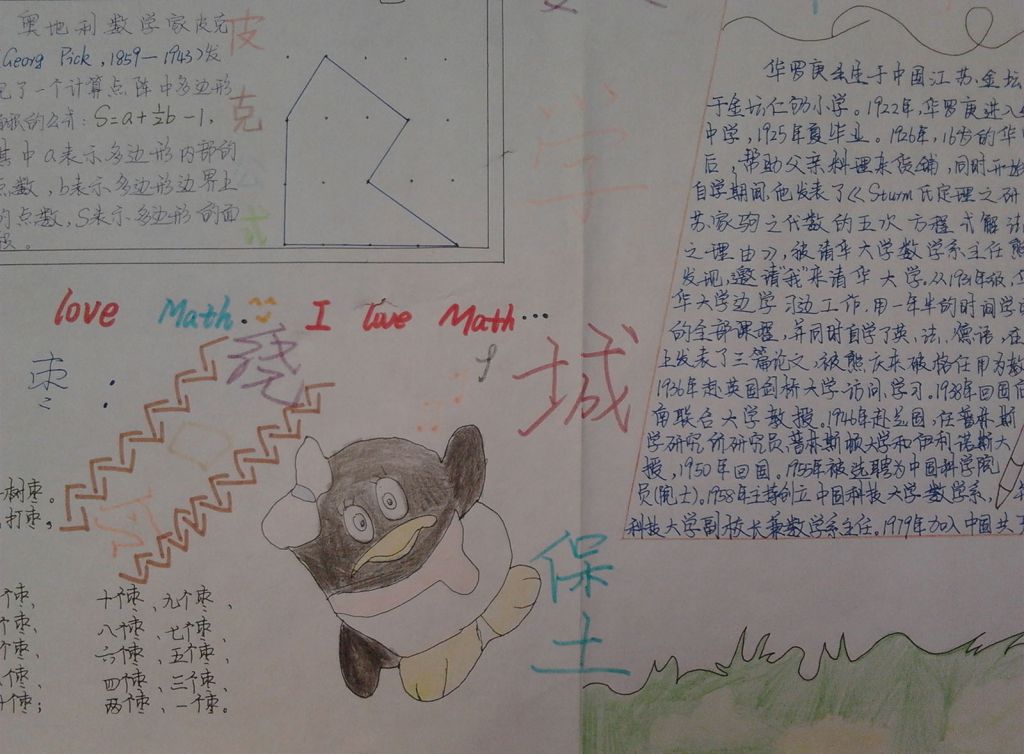 奥地利数学家皮克
(Georg Pick, 1859—1943)发
现了一个计算点阵中多边形
面积的公式: S=a+½b-1,
其中a表示多边形内部的
点数,b表示多边形边界上
的点数,S表示多边形的面
积。
皮
克
公
式
love Math. I love Math...
枣
绕
学
城
保
土
树枣。
打枣,
个枣、 十个枣、九个枣、
个枣、 八个枣、七个枣、
个枣、 六个枣、五个枣、
个枣、 四个枣、三个枣、
个枣; 两个枣、一个枣。
华罗庚出生于中国江苏金坛
于金坛仁劬小学。1922年,华罗庚进入
中学,1925年夏毕业。1926年,16岁的华
后,帮助父亲料理杂货铺,同时开始
自学期间,他发表了《Sturm氏定理之研
苏家驹之代数的五次方程式解法
之理由》,被清华大学数学系主任熊
发现,邀请"我"来清华大学,从1931年级,
华大学边学习边工作,用一年半的时间学
的全部课程,并同时自学了英、法、德语,在
上发表了三篇论文,被熊庆来破格任用为数
1936年赴英国剑桥大学访问、学习。1938年回国
南联合大学教授。1946年赴美国,任普林斯
学研究所研究员、普林斯顿大学和伊利诺斯大
授,1950年回国。1955年被选聘为中国科学院
员(院士)。1958年主持创立中国科技大学数学系,
科技大学副校长兼数学系主任。1979年加入中国共